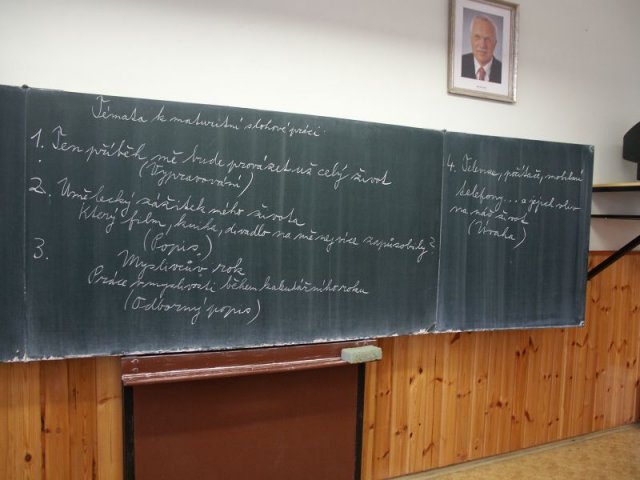 Témata k maturitní slohové práci:
1. Ten příběh mě bude provázet už celý život
(Vypravování)
2. Umělecký zážitek mého života
Který film, kniha, divadlo na mě nejvíce zapůsobily?
(Popis.)
3.
Myslivcův rok
Práce v myslivosti během kalendářního roku
(Odborný popis)
4. Televize, počítače, mobilní
telefony... a jejich vliv
na náš život
(Úvaha)